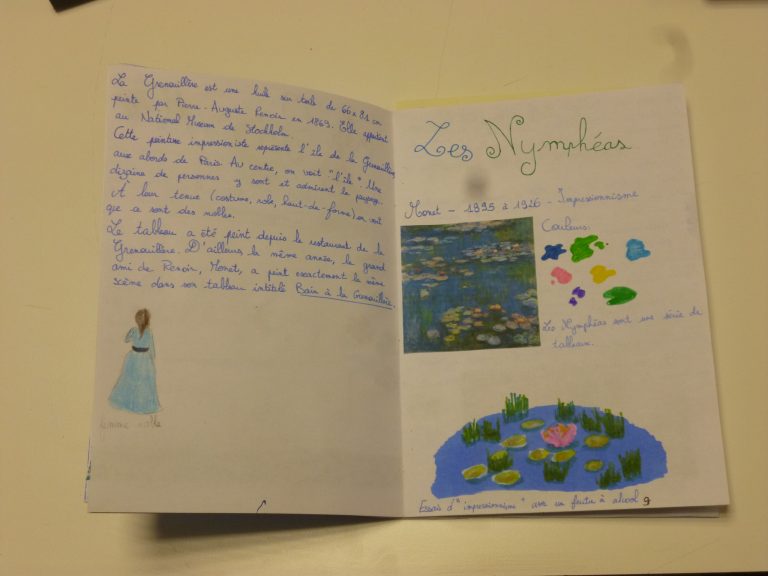 La Grenouillère est une huile sur toile de 66 x 81 cm
peinte par Pierre-Auguste Renoir en 1869. Elle appartient
au National Museum de Stockholm.
Cette peinture impressionniste représente l'île de la Grenouillère
aux abords de Paris. Au centre, on voit "l'île". Une
dizaine de personnes y sont et admirent le paysage.
À leur tenue (costume, robe, haut-de-forme) on voit
que ce sont des nobles.
Le tableau a été peint depuis le restaurant de la
Grenouillère. D'ailleurs la même année, le grand
ami de Renoir, Monet, a peint exactement la même
scène dans son tableau intitulé Bain à la Grenouillère.
femme noble
Les Nymphéas
Monet - 1895 à 1926 - Impressionnisme
Couleurs:
Les Nymphéas sont une série de
tableaux.
Essai d'"impressionnisme" avec un feutre à alcool